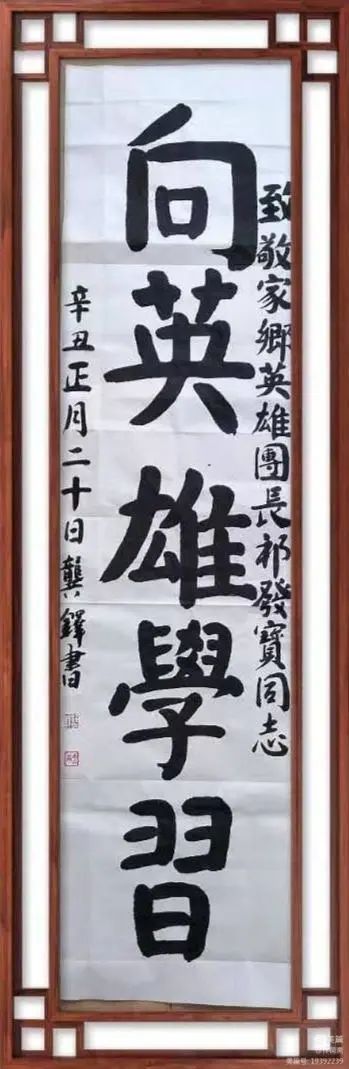 致敬家鄉英雄團長祁發寶同志
向英雄學習
辛丑正月二十日龔鐸書
美篇
美篇号: 19392239